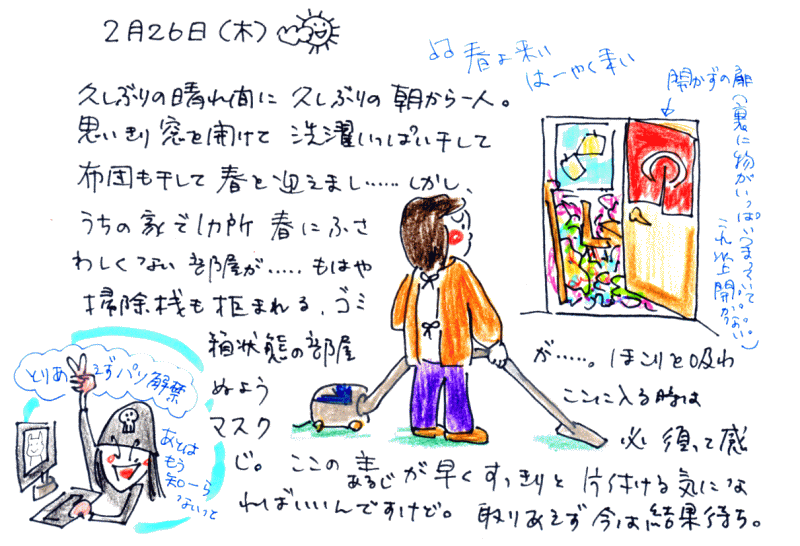 2月26日(木)
春よ来い
はーやく来い
開かずの扉
(裏に物がいっぱいつまっていて
これ以上開かない。)
久しぶりの晴れ間に 久しぶりの朝から一人。
思いきり窓を開けて 洗濯いっぱい干して
布団も干して 春を迎えまし……しかし、
うちの家で1カ所 春にふさ
わしくない部屋が……もはや
掃除機も拒まれる、ゴミ
箱状態の部屋
が……。ほこりを吸わ
ぬよう
ここに入る時は
マスク
必須って感
じ。ここの主あるじが早くすっきりと片付ける気にな
ればいいんですけど。取りあえず今は結果待ち。
とりあえずパソ解禁
あとは
もう
知ーら
ないっと